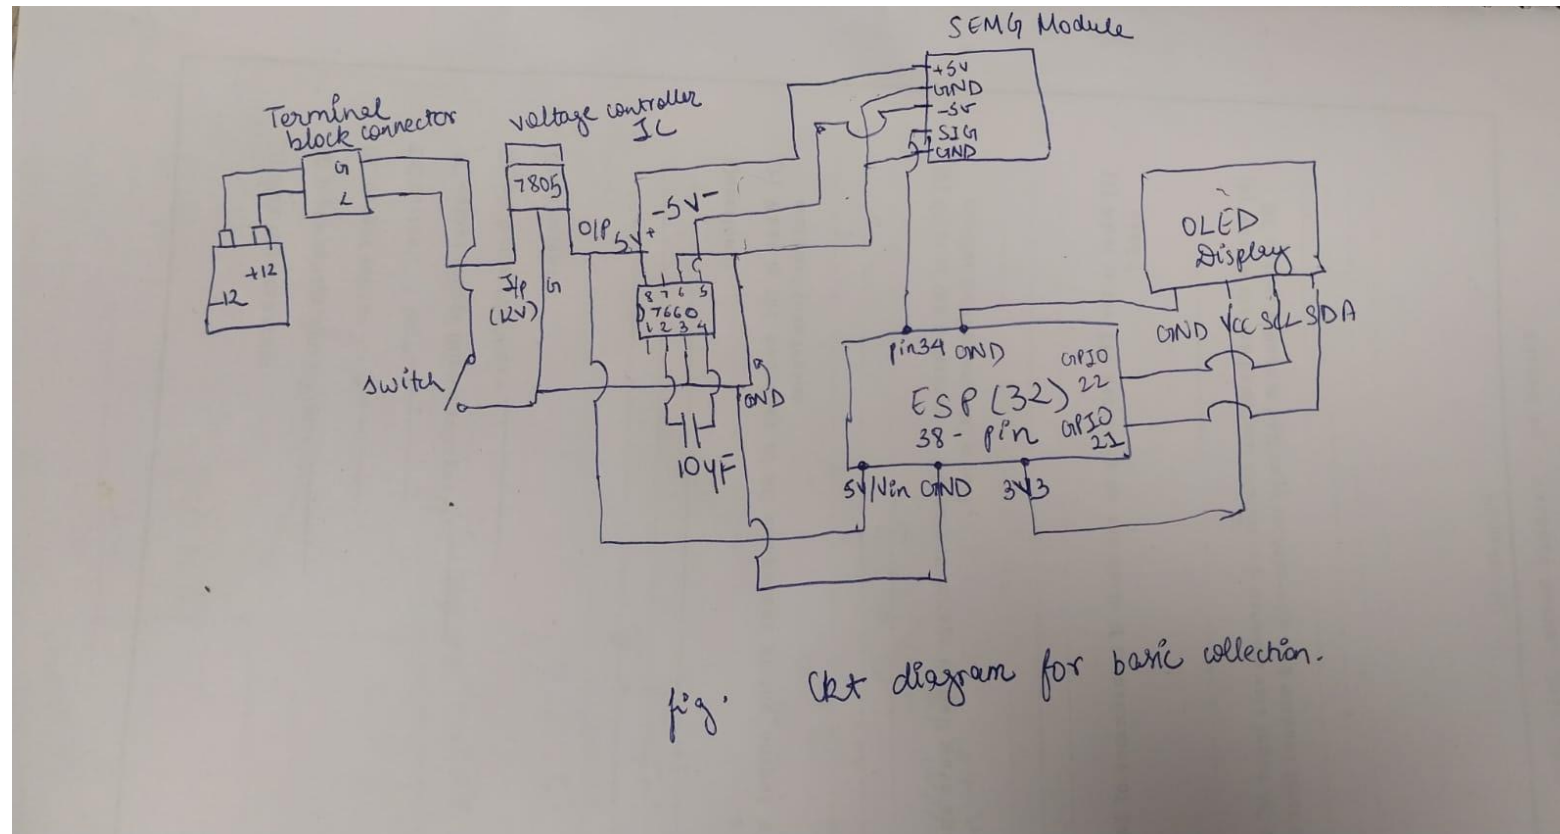 SEMG Module
+5V
GND
-5V
SIG
GND
Terminal
block connector
G
L
+12
-12
voltage controller
IC
7805
O/P
5V +
-5V -
I/p
(12V)
G
8 7 6 5
7660
1 2 3 4
switch
GND
10μF
OLED
Display
GND VCC SCL SDA
pin34 GND
GPIO
22
ESP (32)
38- pin
GPIO
21
5V/Vin GND 3V3
fig. Ckt diagram for basic collection.